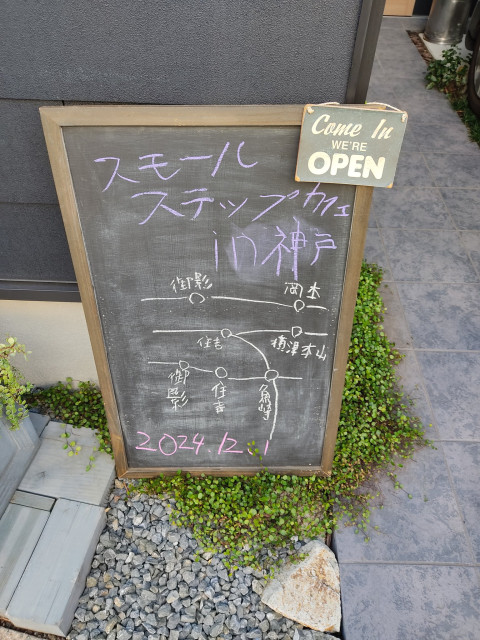 Come In
WE'RE
OPEN
スモール
ステップカフェ
in神戸
御影 岡本
住吉 摂津本山
御影 住吉 魚崎
2024.12.1